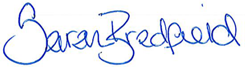 Sarah Bradfield